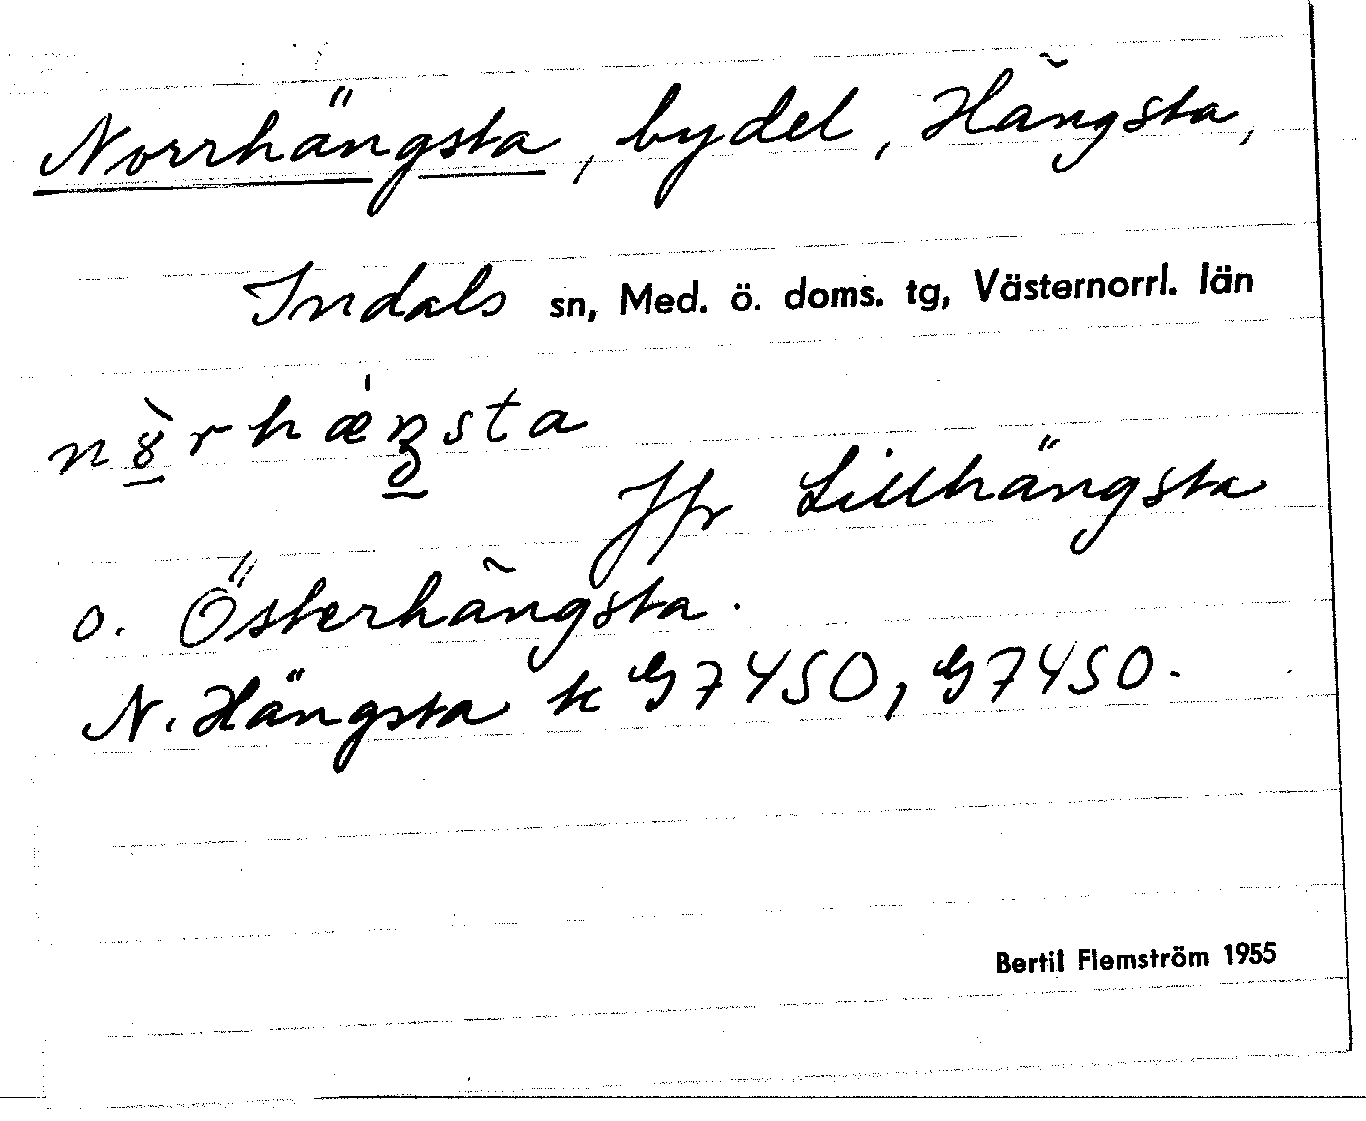 Norrhängsta, bydel, Hängsta,
Indals sn, Med. ö. doms. tg, Västernorrl. län
Jfr Lillhängsta
o. Österhängsta.
N. Hängsta k G7450, G7450.
Bertil Flemström 1955